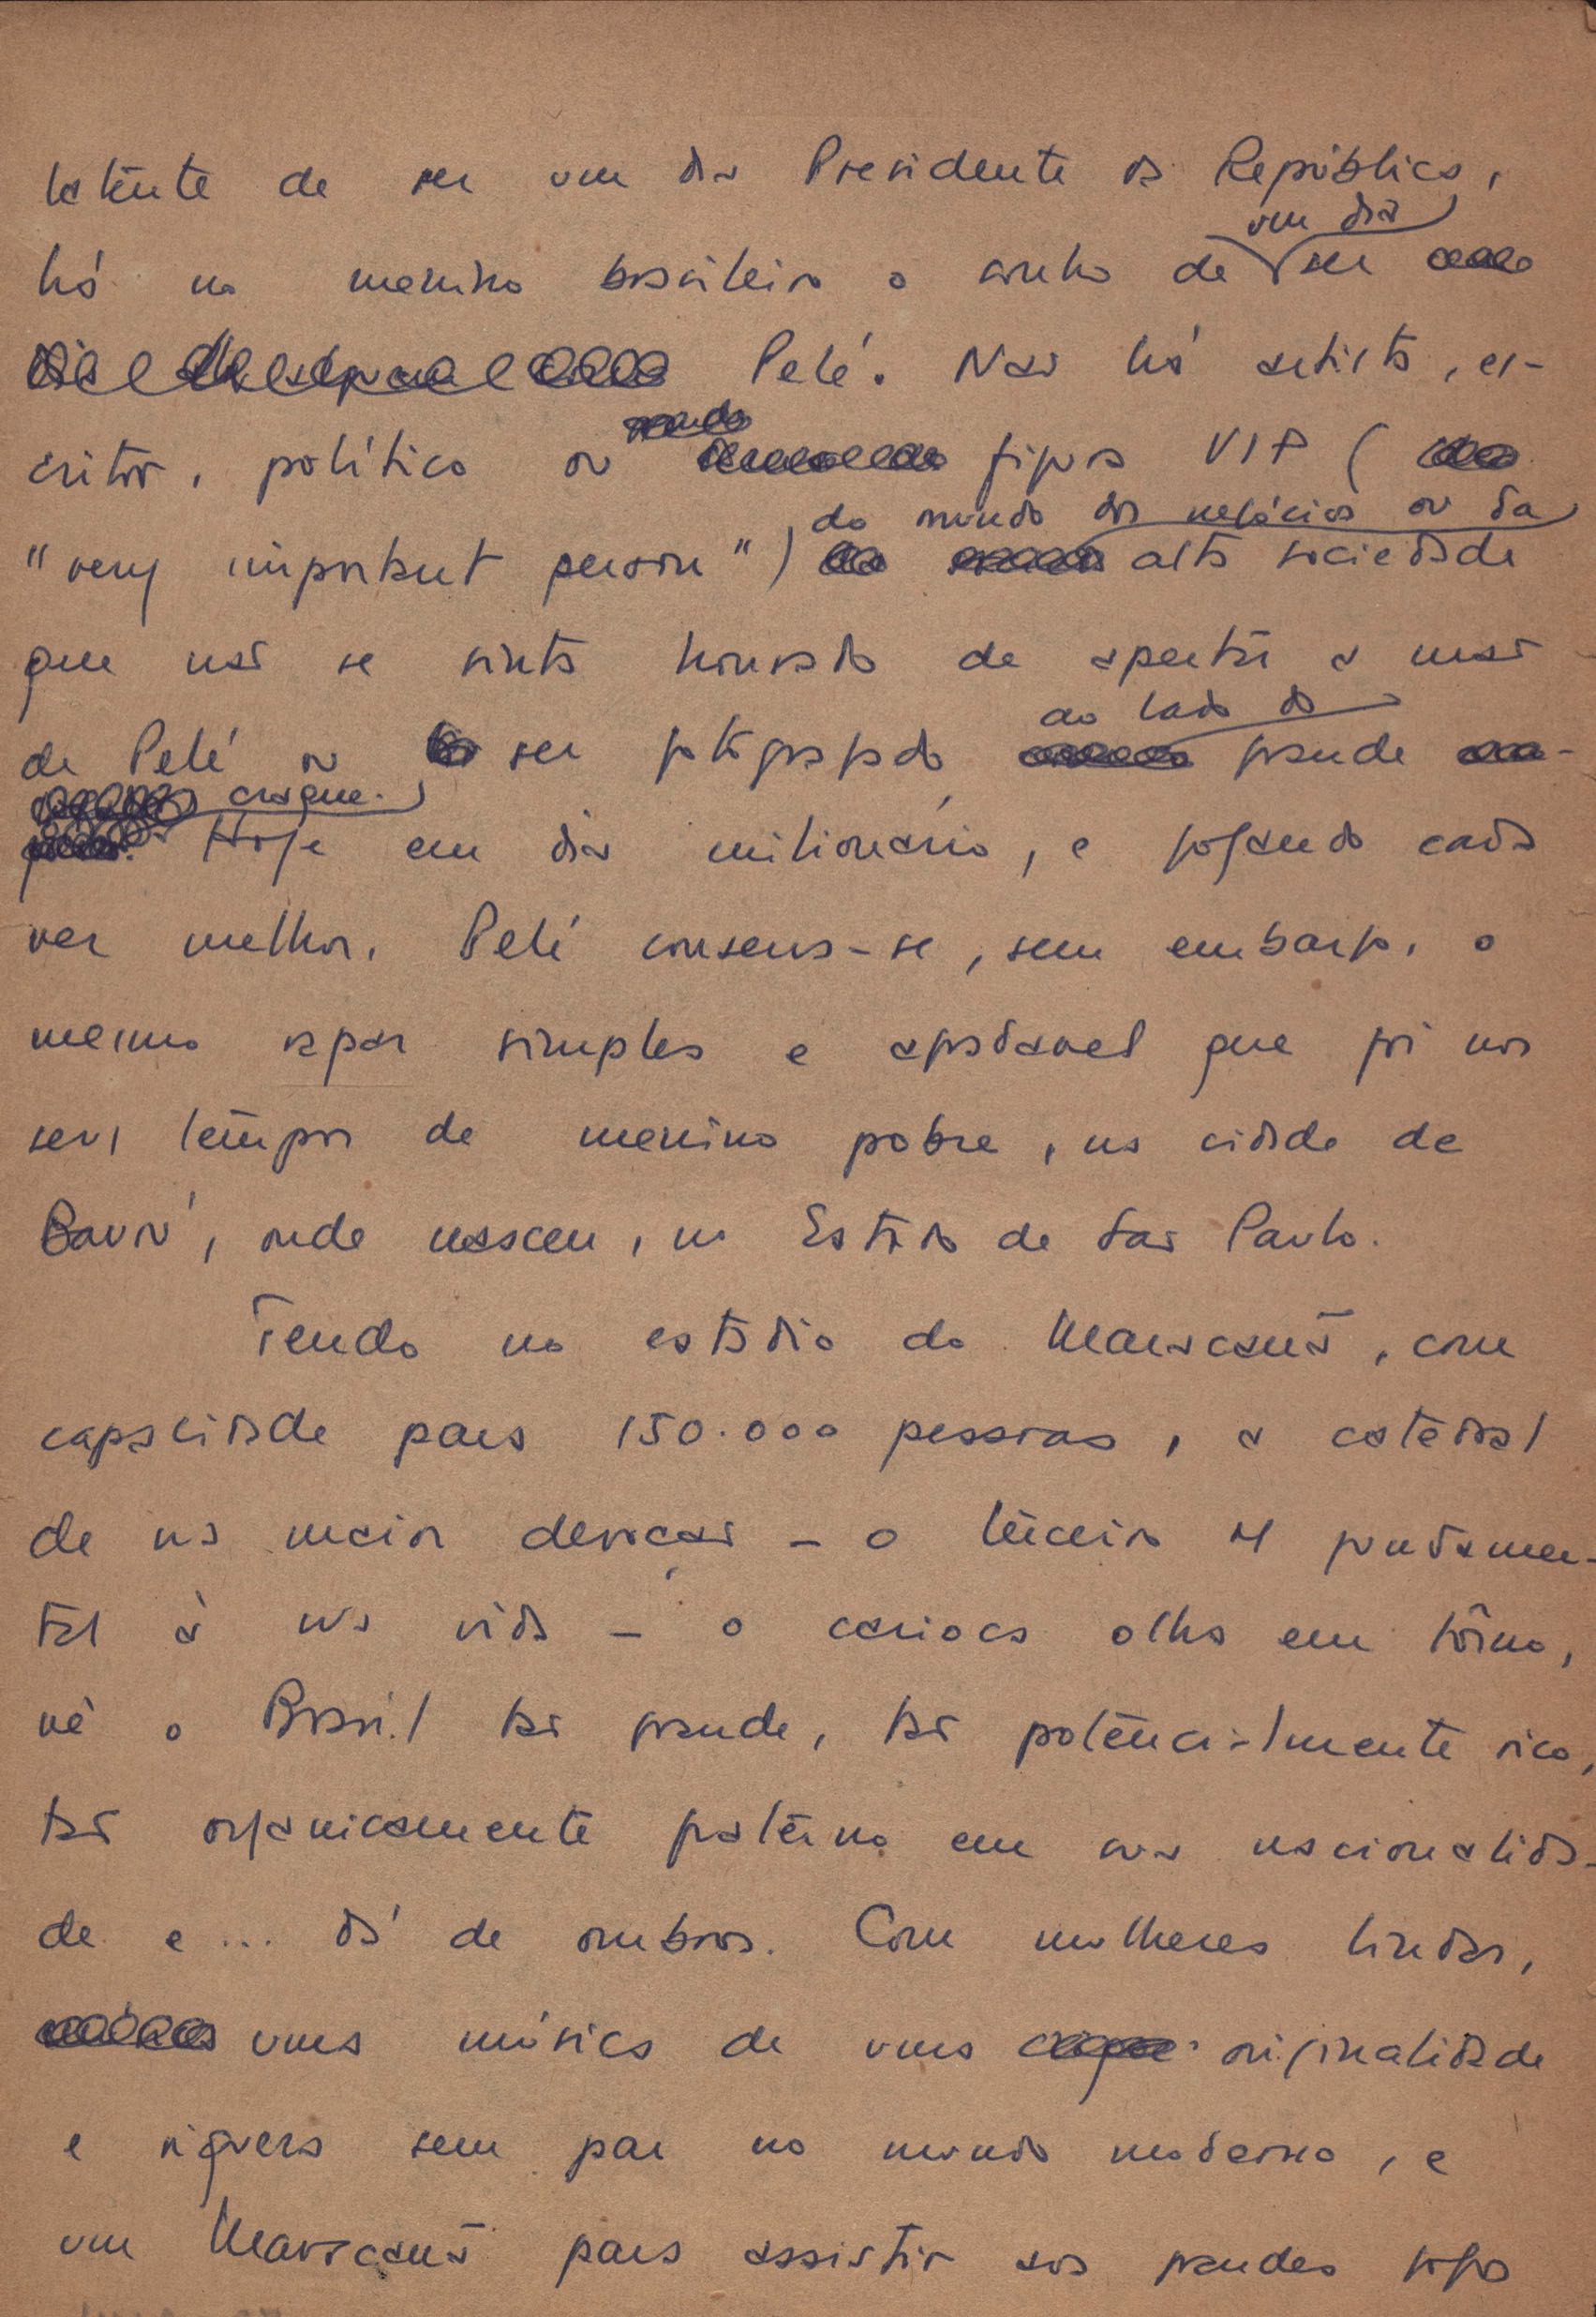 latente de ser um dia Presidente da República,
um dia
há no menino brasileiro o sonho de ser
Pelé. Não há artista, es-
critor, político ou figura VIP (
do mundo dos negócios ou da
"very important person") alta sociedade
que não se sinta honrado de apertar a mão
ao lado do
de Pelé ou ser fotografado grande
craque.
Hoje em dia milionário, e jogando cada
vez melhor, Pelé conserva-se, sem embargo, o
mesmo rapaz simples e agradável que foi nos
seus tempos de menino pobre, na cidade de
Bauru, onde nasceu, no Estado de São Paulo.
Tendo no estádio do Maracanã, com
capacidade para 150.000 pessoas, a catedral
de sua maior devoção – o terceiro M fundamen-
tal à sua vida – o carioca olha em tôrno,
vê o Brasil tão grande, tão potencialmente rico,
tão organicamente fraterno em sua nacionalida-
de e... dá de ombros. Com mulheres lindas,
uma música de uma originalidade
e riqueza sem par no mundo moderno, e
um Maracanã para assistir aos grandes jogos